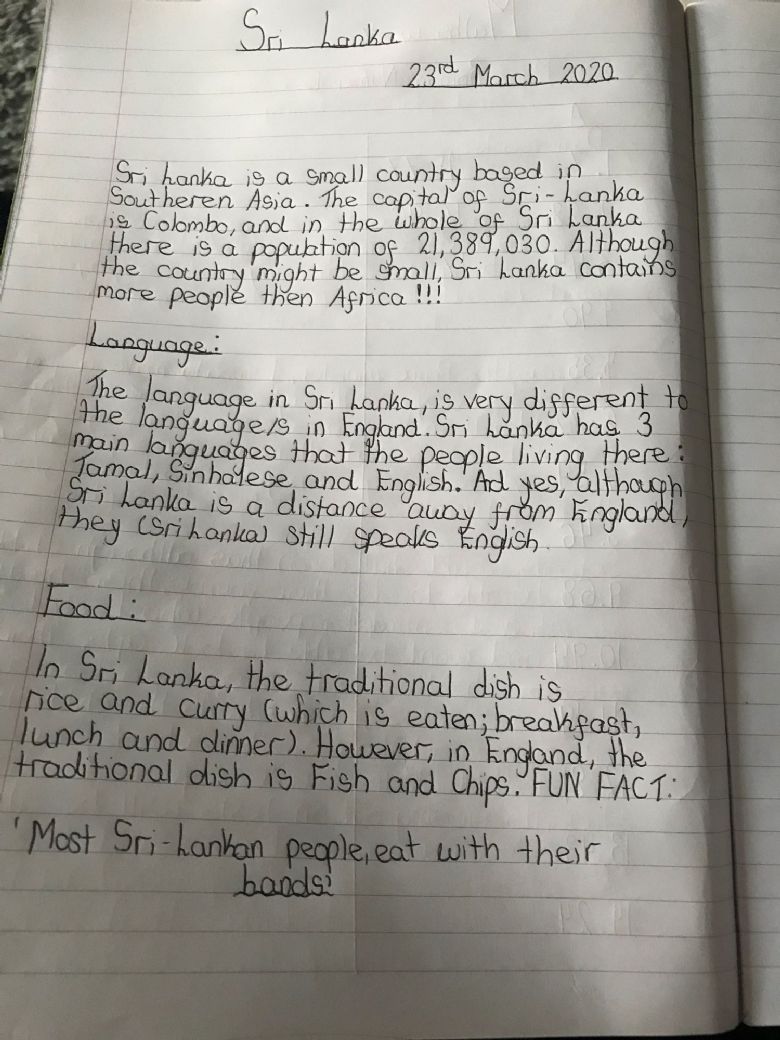 Sri Lanka
23rd March 2020
Sri Lanka is a small country based in
Southeren Asia. The capital of Sri-Lanka
is Colombo, and in the whole of Sri Lanka
there is a population of 21,389,030. Although
the country might be small, Sri Lanka contains
more people then Africa!!!
Language:
The language in Sri Lanka, is very different to
the language/s in England. Sri Lanka has 3
main languages that the people living there:
Tamal, Sinhalese and English. And yes, although
Sri Lanka is a distance away from England,
they (Sri Lanka) still speaks English.
Food:
In Sri Lanka, the traditional dish is
rice and curry (which is eaten; breakfast,
lunch and dinner). However, in England, the
traditional dish is Fish and Chips. FUN FACT:
'Most Sri-Lankan people, eat with their
hands!'